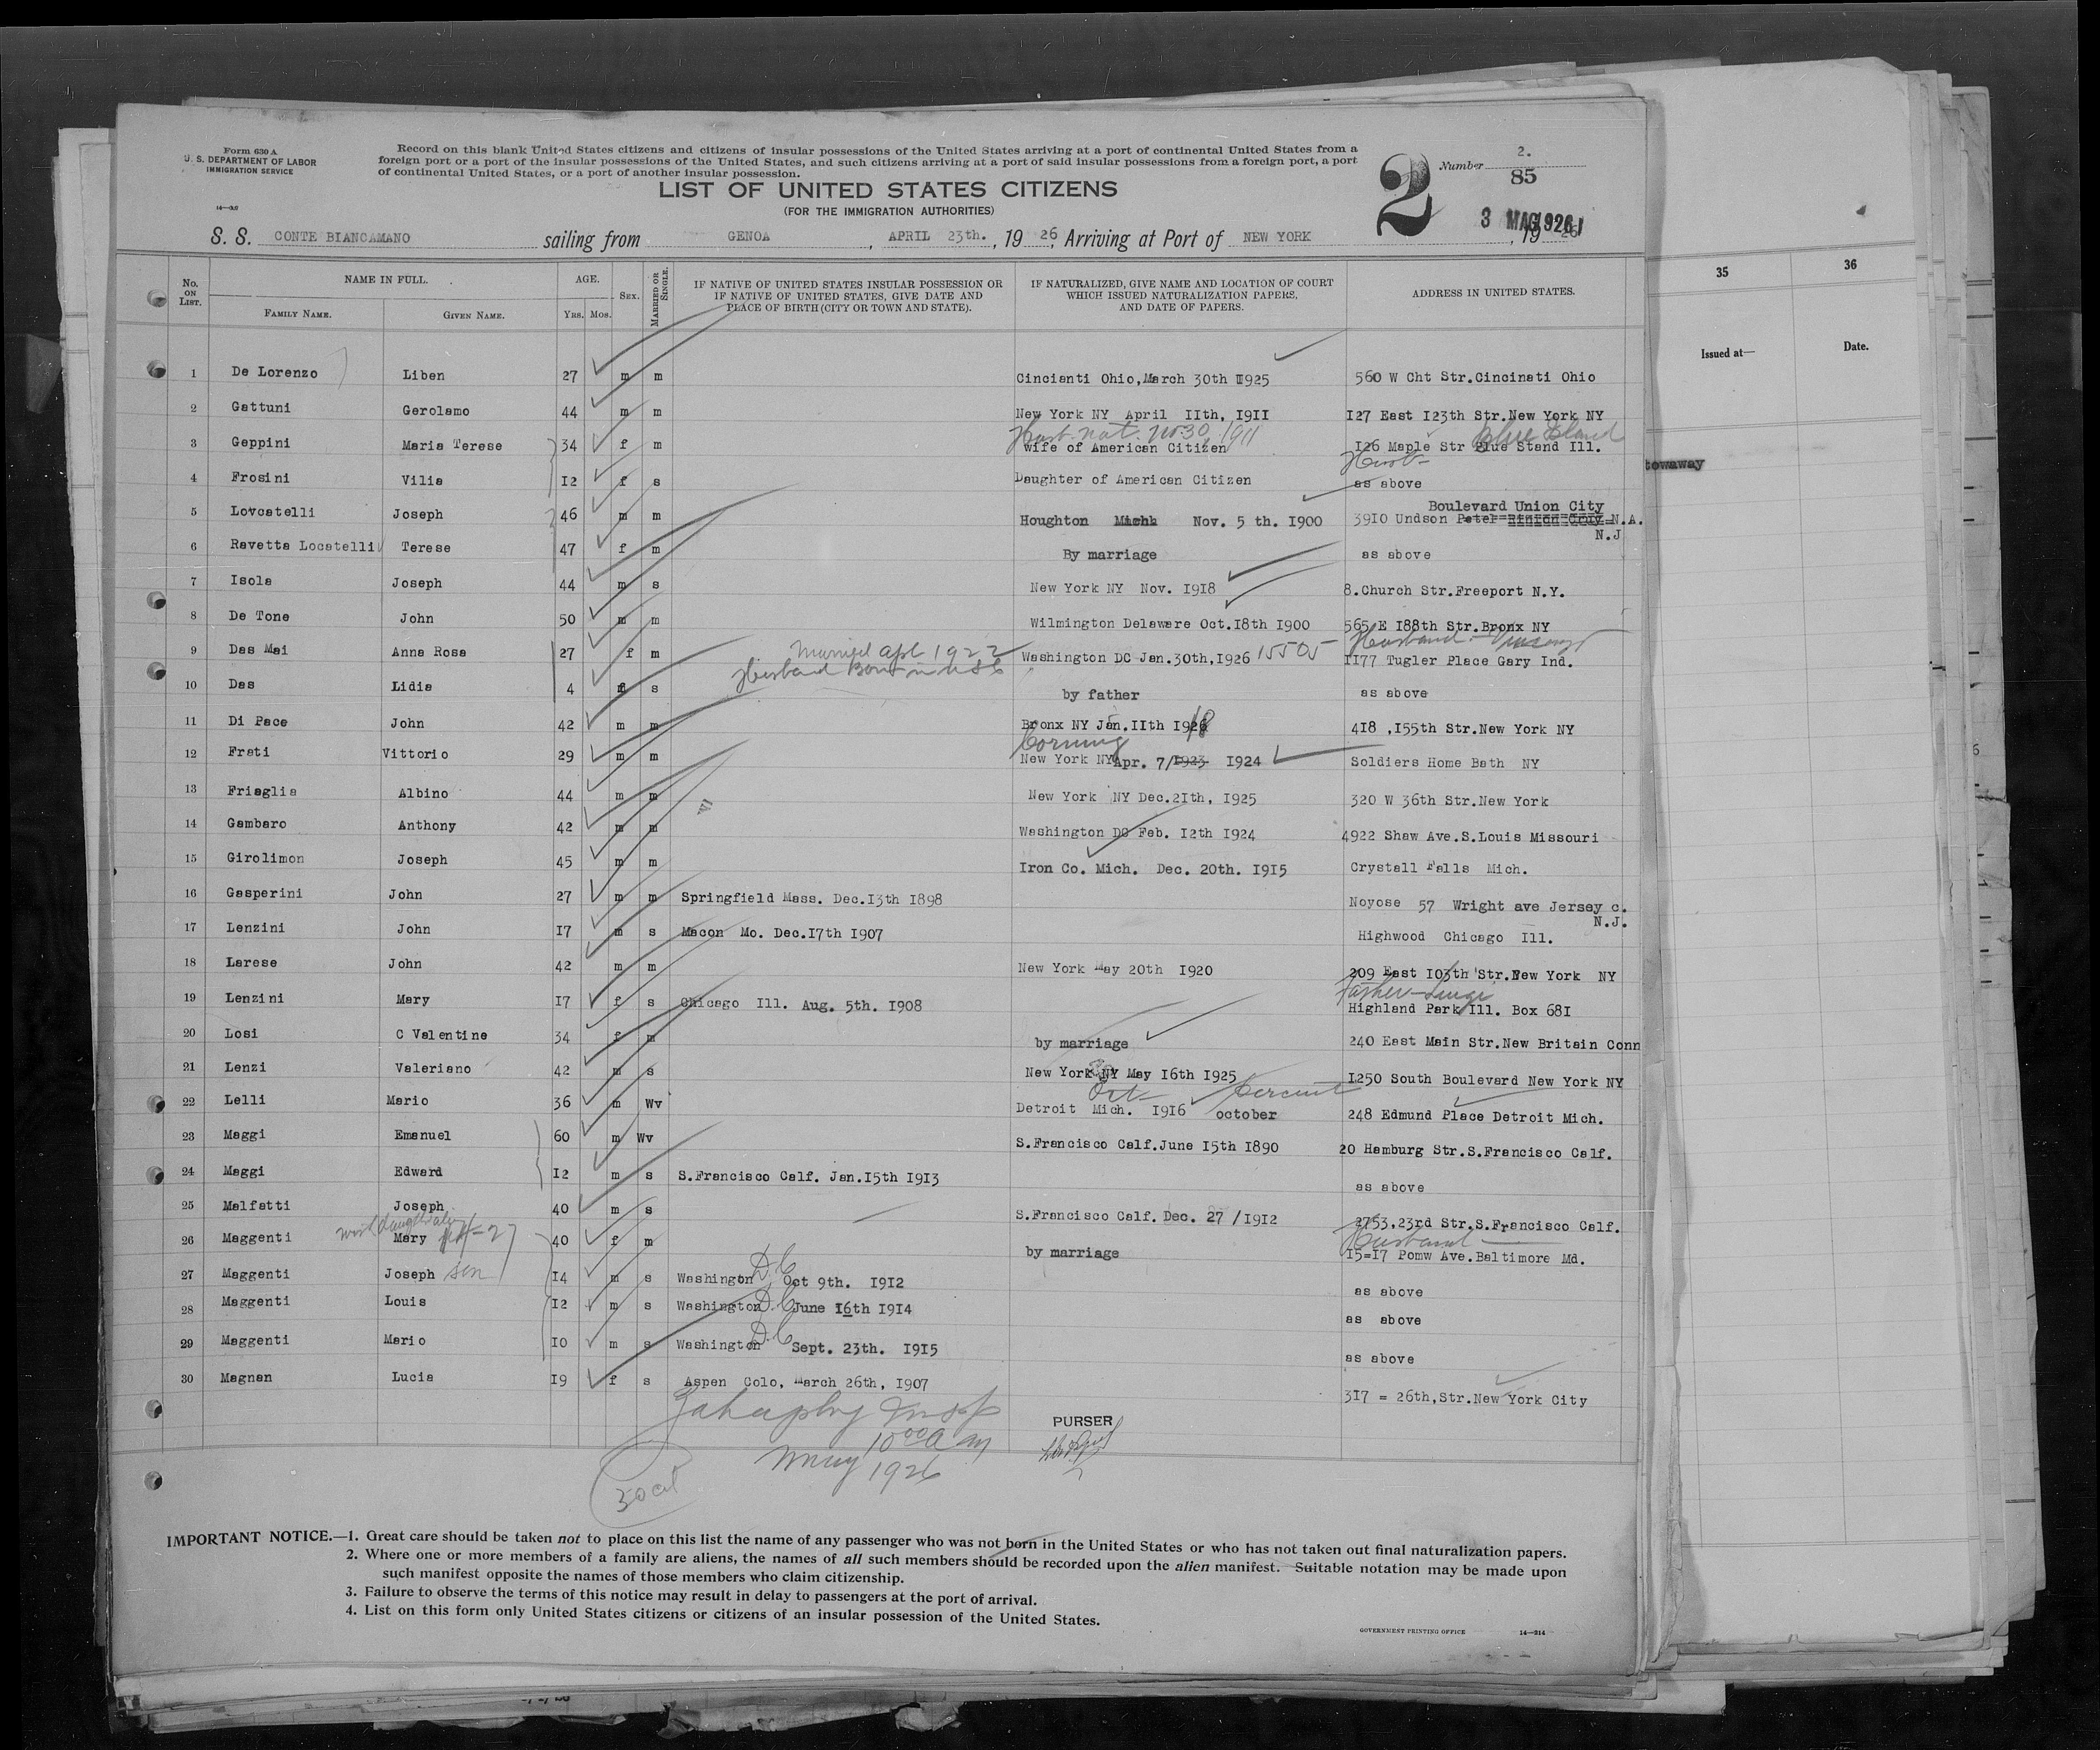 Form 630 A
U. S. DEPARTMENT OF LABOR
IMMIGRATION SERVICE
14—38
Record on this blank United States citizens and citizens of insular possessions of the United States arriving at a port of continental United States from a
foreign port or a port of the insular possessions of the United States, and such citizens arriving at a port of said insular possessions from a foreign port, a port
of continental United States, or a port of another insular possession.
LIST OF UNITED STATES CITIZENS
(FOR THE IMMIGRATION AUTHORITIES)
2
Number 2.
85
S. S. CONTE BIANCAMANO sailing from GENOA, APRIL 23th., 19 26, Arriving at Port of NEW YORK, 19 26
3 MAG 1926
No. ON LIST.
NAME IN FULL.
FAMILY NAME.
GIVEN NAME.
AGE.
YRS. MOS.
SEX.
MARRIED OR SINGLE.
IF NATIVE OF UNITED STATES INSULAR POSSESSION OR
IF NATIVE OF UNITED STATES, GIVE DATE AND
PLACE OF BIRTH (CITY OR TOWN AND STATE).
IF NATURALIZED, GIVE NAME AND LOCATION OF COURT
WHICH ISSUED NATURALIZATION PAPERS,
AND DATE OF PAPERS.
ADDRESS IN UNITED STATES.
35 36
Issued at— Date.
towaway
1 De Lorenzo Liben 27 m m Cincianti Ohio, March 30th I925 560 W Cht Str.Cincinati Ohio
2 Gattuni Gerolamo 44 m m New York NY April IIth, I9II I27 East I23th Str.New York NY
Hust. nat. Nov 30, 1911 Blue Island
3 Geppini Maria Terese 34 f m wife of American Citizen I26 Maple Str Blue Stand Ill.
Husb-
4 Frosini Vilia I2 f s Daughter of American Citizen as above
Boulevard Union City
5 Lovcatelli Joseph 46 m m Houghton Michh Nov. 5 th. I900 39I0 Undson N.A.
N.J
6 Ravetta Locatelli Terese 47 f m By marriage as above
7 Isola Joseph 44 m s New York NY Nov. I9I8 8.Church Str.Freeport N.Y.
8 De Tone John 50 m m Wilmington Delaware Oct.I8th I900 565 E I88th Str.Bronx NY
Married Apl 1922 Husband
9 Das Mai Anna Rosa 27 f m Washington DC Jan.30th,I926 15505 II77 Tugler Place Gary Ind.
Husband Born in U S
10 Das Lidia 4 f s by father as above
11 Di Pace John 42 m m Bronx NY Jan.IIth I926 18 4I8 ,I55th Str.New York NY
Corning
12 Frati Vittorio 29 m m New York NY Apr. 7/I923 I924 Soldiers Home Bath NY
13 Friaglia Albino 44 m m New York NY Dec.2Ith, I925 320 W 36th Str.New York
14 Gambaro Anthony 42 m m Washington DC Feb. I2th I924 4922 Shaw Ave.S.Louis Missouri
15 Girolimon Joseph 45 m m Iron Co. Mich. Dec. 20th. I9I5 Crystall Falls Mich.
16 Gasperini John 27 m m Springfield Mass. Dec.I3th I898 Noyose 57 Wright ave Jersey c.
N.J.
17 Lenzini John I7 m s Macon Mo. Dec.I7th I907 Highwood Chicago Ill.
18 Larese John 42 m m New York May 20th I920 209 East I03th Str.New York NY
Father-Luigi
19 Lenzini Mary I7 f s Chicago Ill. Aug. 5th. I908 Highland Park Ill. Box 68I
20 Losi C Valentine 34 f m by marriage 240 East Main Str.New Britain Conn
21 Lenzi Valeriano 42 m s New York NY May I6th I925 I250 South Boulevard New York NY
Oct- Circuit
22 Lelli Mario 36 m Wv Detroit Mich. I9I6 october 248 Edmund Place Detroit Mich.
23 Maggi Emanuel 60 m Wv S.Francisco Calf.June I5th I890 20 Hamburg Str.S.Francisco Calf.
24 Maggi Edward I2 m s S.Francisco Calf. Jan.I5th I9I3 as above
25 Malfatti Joseph 40 m s S.Francisco Calf. Dec. 27 /I9I2 2753,23rd Str.S.Francisco Calf.
Husband
26 Maggenti Mary 40 f m by marriage I5=I7 Pomw Ave.Baltimore Md.
27 Maggenti Joseph son I4 m s Washington D.C Oct 9th. I9I2 as above
28 Maggenti Louis I2 m s Washington D.C June I6th I9I4 as above
29 Maggenti Mario I0 m s Washington D.C Sept. 23th. I9I5 as above
30 Magnan Lucia I9 f s Aspen Colo, March 26th, I907 3I7 = 26th,Str.New York City
Insp
10 00 A m
May 1926
30 cit
PURSER
IMPORTANT NOTICE.—1. Great care should be taken not to place on this list the name of any passenger who was not born in the United States or who has not taken out final naturalization papers.
2. Where one or more members of a family are aliens, the names of all such members should be recorded upon the alien manifest. Suitable notation may be made upon
such manifest opposite the names of those members who claim citizenship.
3. Failure to observe the terms of this notice may result in delay to passengers at the port of arrival.
4. List on this form only United States citizens or citizens of an insular possession of the United States.
GOVERNMENT PRINTING OFFICE 14—314